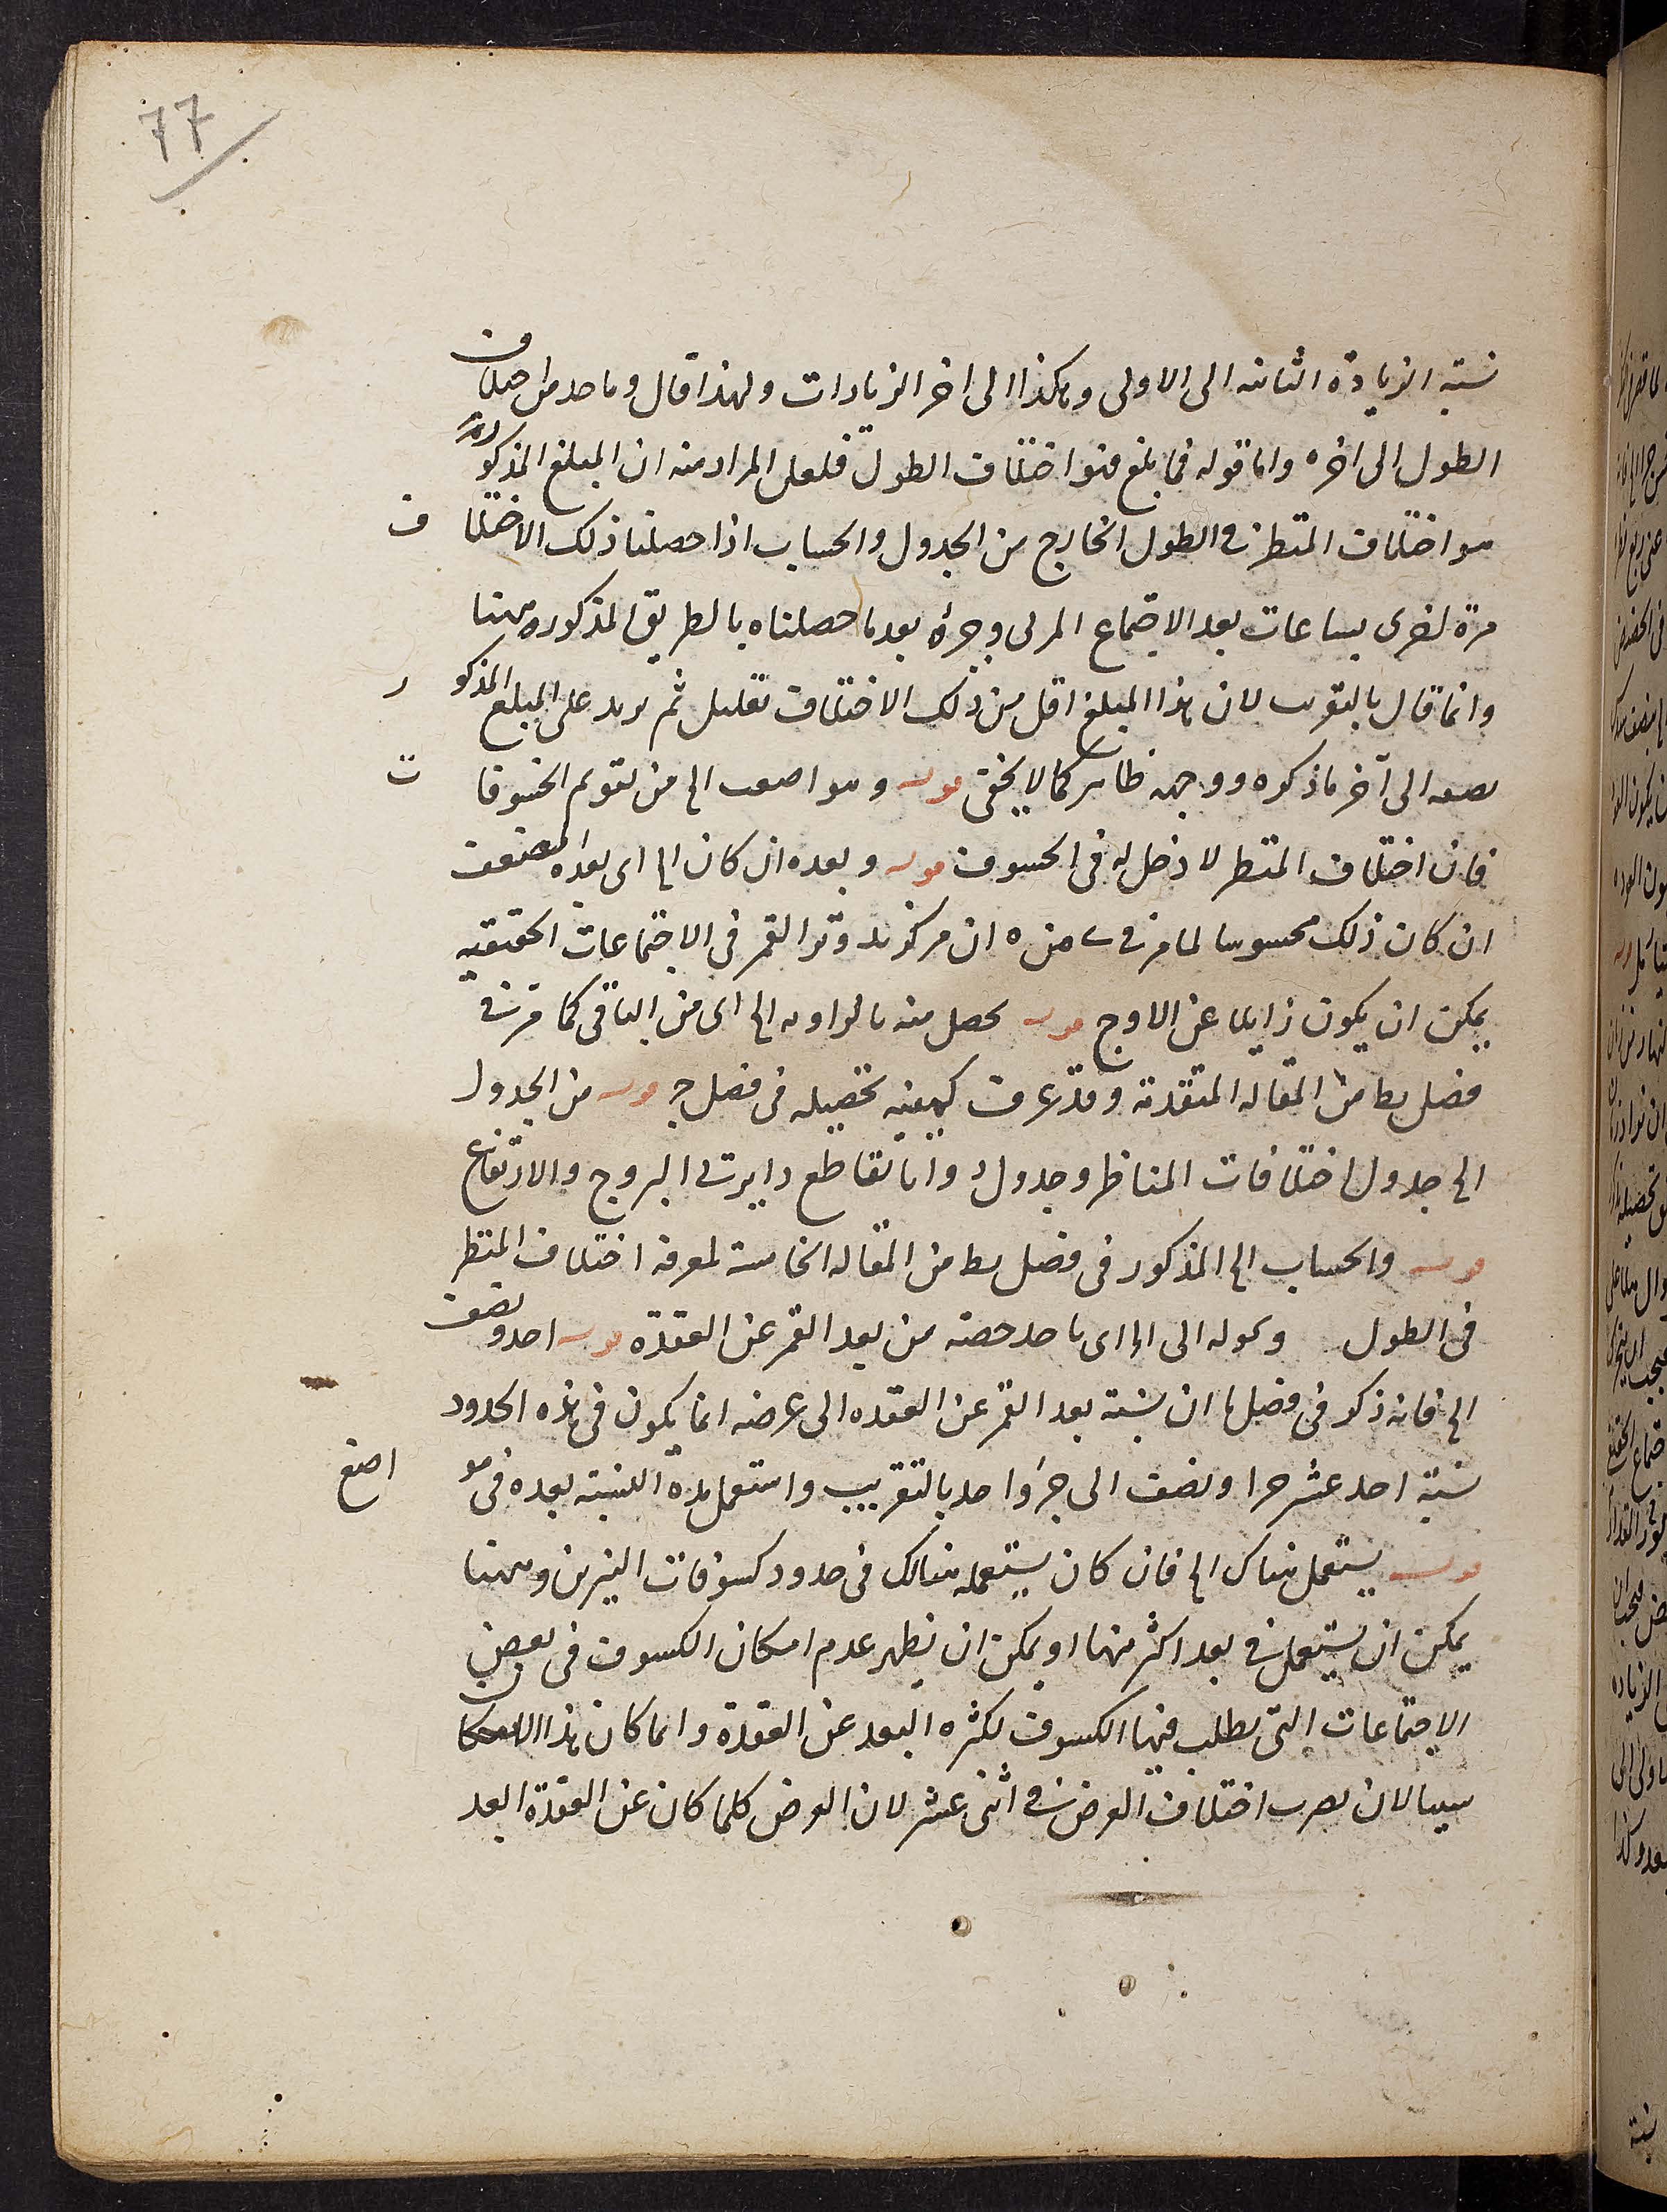 77
نسبة الزيادة الثانيه الى الاولى وهكذا الى اخر الزيادات ولهذا قال وناخد من اختلاف
الطول الى اخره واما قوله فما بلغ فهو اختلاف الطول فلعل المراد منه ان المبلغ المذكور
هو اختلاف المنظر فى الطول الخارج من الجدول والحساب اذا حصلنا ذلك الاختلاف
مرة اخرى بساعات بعد الاجتماع المرئى وجزئه بعد ما حصلناه بالطريق المذكوره ههنا
وانما قال بالتقريب لان هذا المبلغ اقل من ذلك الاختلاف بقليل ثم نزيد على المبلغ المذكور
نصفه الى آخر ما ذكره ووجهه ظاهر كما لا يخفى قوله وهو اصعب الخ من تقويم الخسوفات
فان اختلاف المنظر لا دخل له فى الخسوف قوله وبعده ان كان الخ اى بعد
ان كان ذلك محسوسا لما مر فى من ه ان مركز تدوير القمر فى الاجتماعات الحقيقيه
يمكن ان يكون زايلا عن الاوج قوله يحصل منه بالزاويه الخ اى من الباقى كما مر فى
فصل يط من المقاله المتقدمة وقد عرفت كيفية تحصيله فى فصل ج قوله من الجدول
الخ جدول اختلافات المناظر وجدول زوايا تقاطع دايرتى البروج والارتفاع
قوله والحساب الخ المذكور فى فصل يط من المقاله الخامسة لمعرفة اختلاف المنظر
فى الطول وقوله الى الخ اى ناخد حصته من بعد القمر عن العقدة قوله احد ونصف
الخ فانه ذكر فى فصل ان نسبة بعد القمر عن العقده الى عرضه انما يكون فى هذه الحدود
نسبة احد عشر جزءا ونصف الى جزؤ واحد بالتقريب واستعمل هذه النسبة بعده فى مواضع
قوله يستعمل هناك الخ فان كان يستعمله هنالك فى حدود كسوفات النيرين وههنا
يمكن ان يستعمل فى بعد اكثر منها او يمكن ان يظهر عدم امكان الكسوف فى بعض
الاجتماعات التى يطلب فيها الكسوف لكثره البعد عن العقدة وانما كان هذا الامكان
سببا لان نضرب اختلاف العرض فى اثنى عشر لان العرض كلما كان عن العقدة ابعد